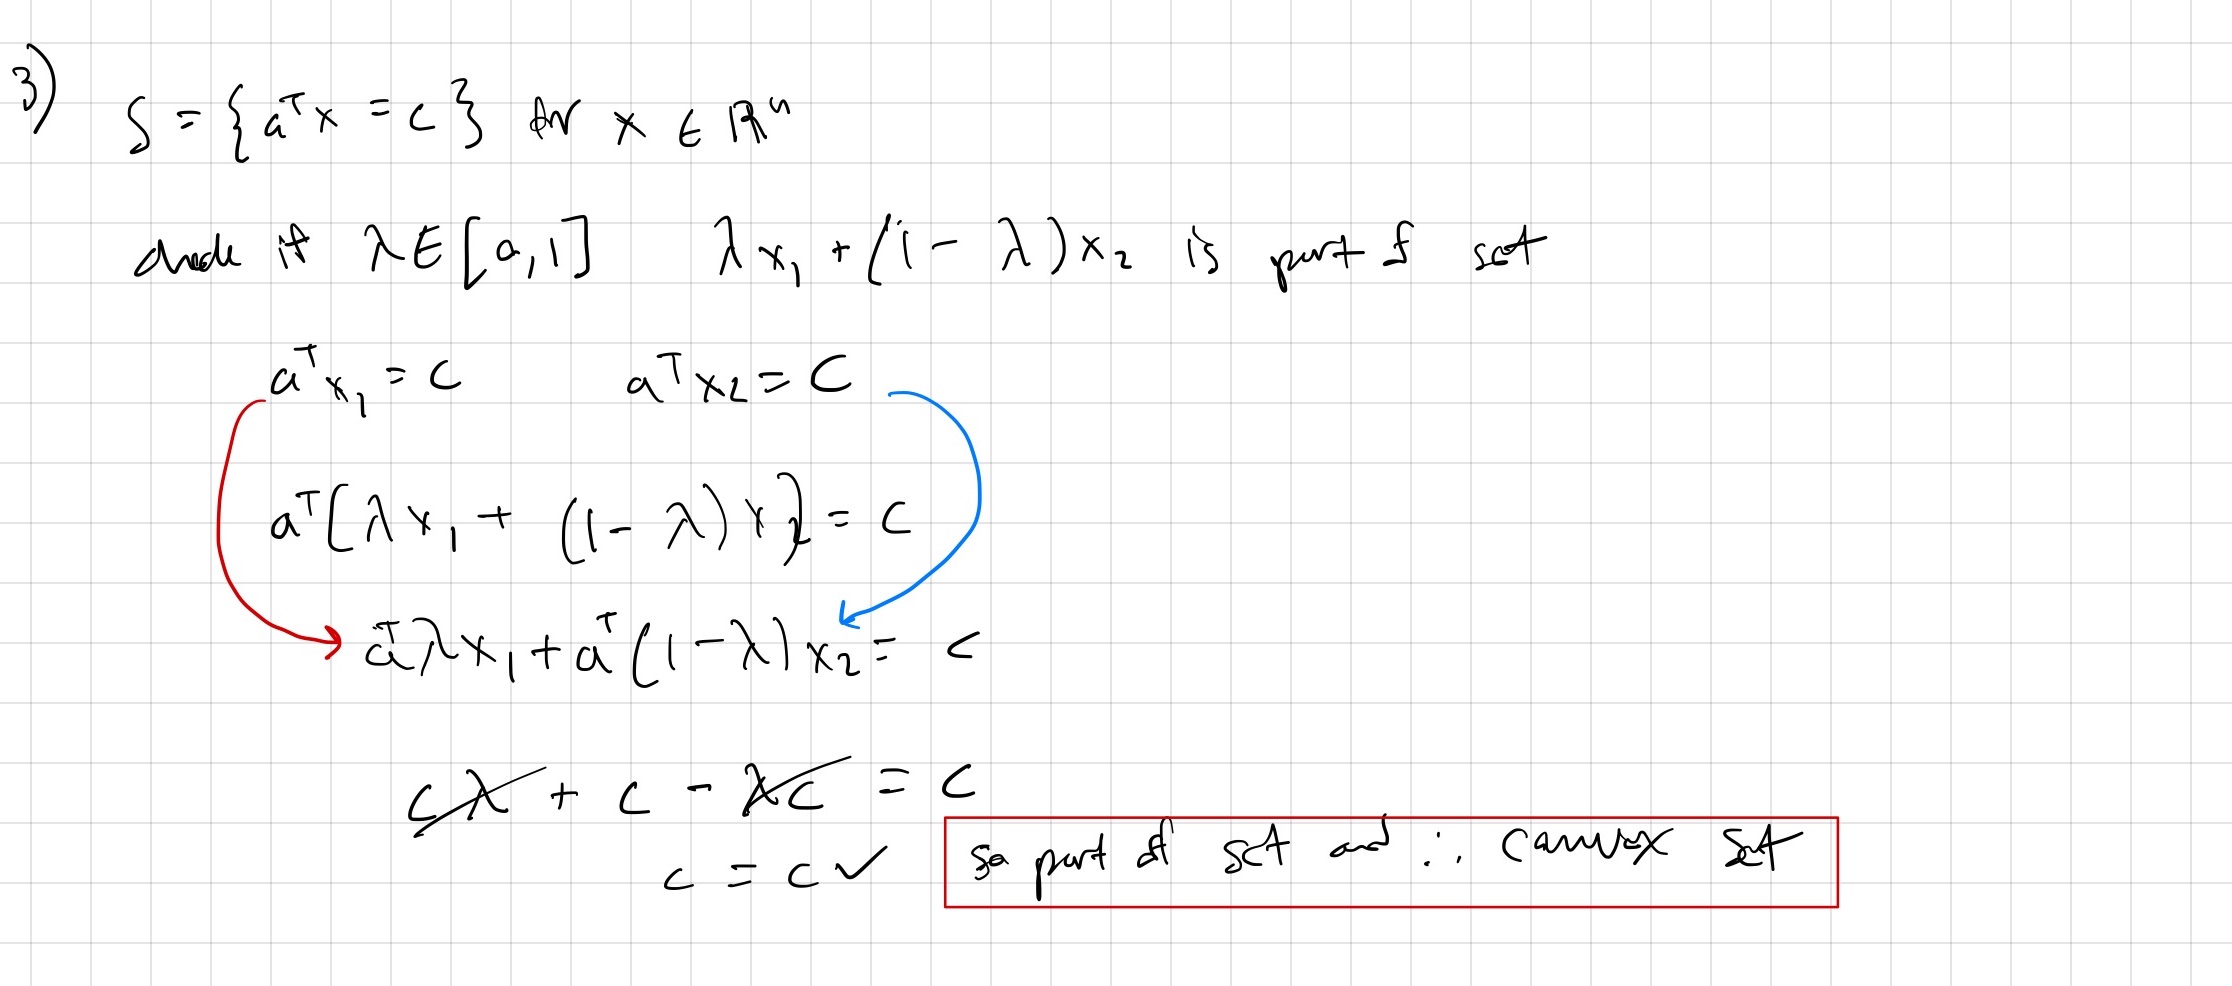 3)
S = {aᵀx = c} for x ∈ ℝⁿ
check if λ ∈ [0,1] λx₁ + (1 - λ)x₂ is part of set
aᵀx₁ = c aᵀx₂ = c
aᵀ[λx₁ + (1 - λ)x₂] = c
aᵀλx₁ + aᵀ(1 - λ)x₂ = c
cλ + c - λc = c
c = c ✓
so part of set and ∴ convex set